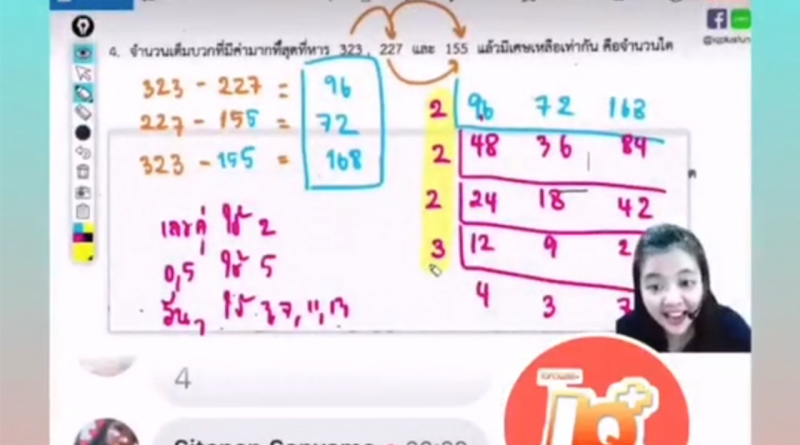 4. จำนวนเต็มบวกที่มีค่ามากที่สุดที่หาร 323 , 227 และ 155 แล้วมีเศษเหลือเท่ากัน คือจำนวนใด
323 - 227 = 96
227 - 155 = 72
323 - 155 = 168
2 96 72 168
2 48 36 84
2 24 18 42
3 12 9 2
4 3 7
เลขคู่ ใช้ 2
0,5 ใช้ 5
อื่นๆ ใช้ 3,7,11,13
4
IQ+